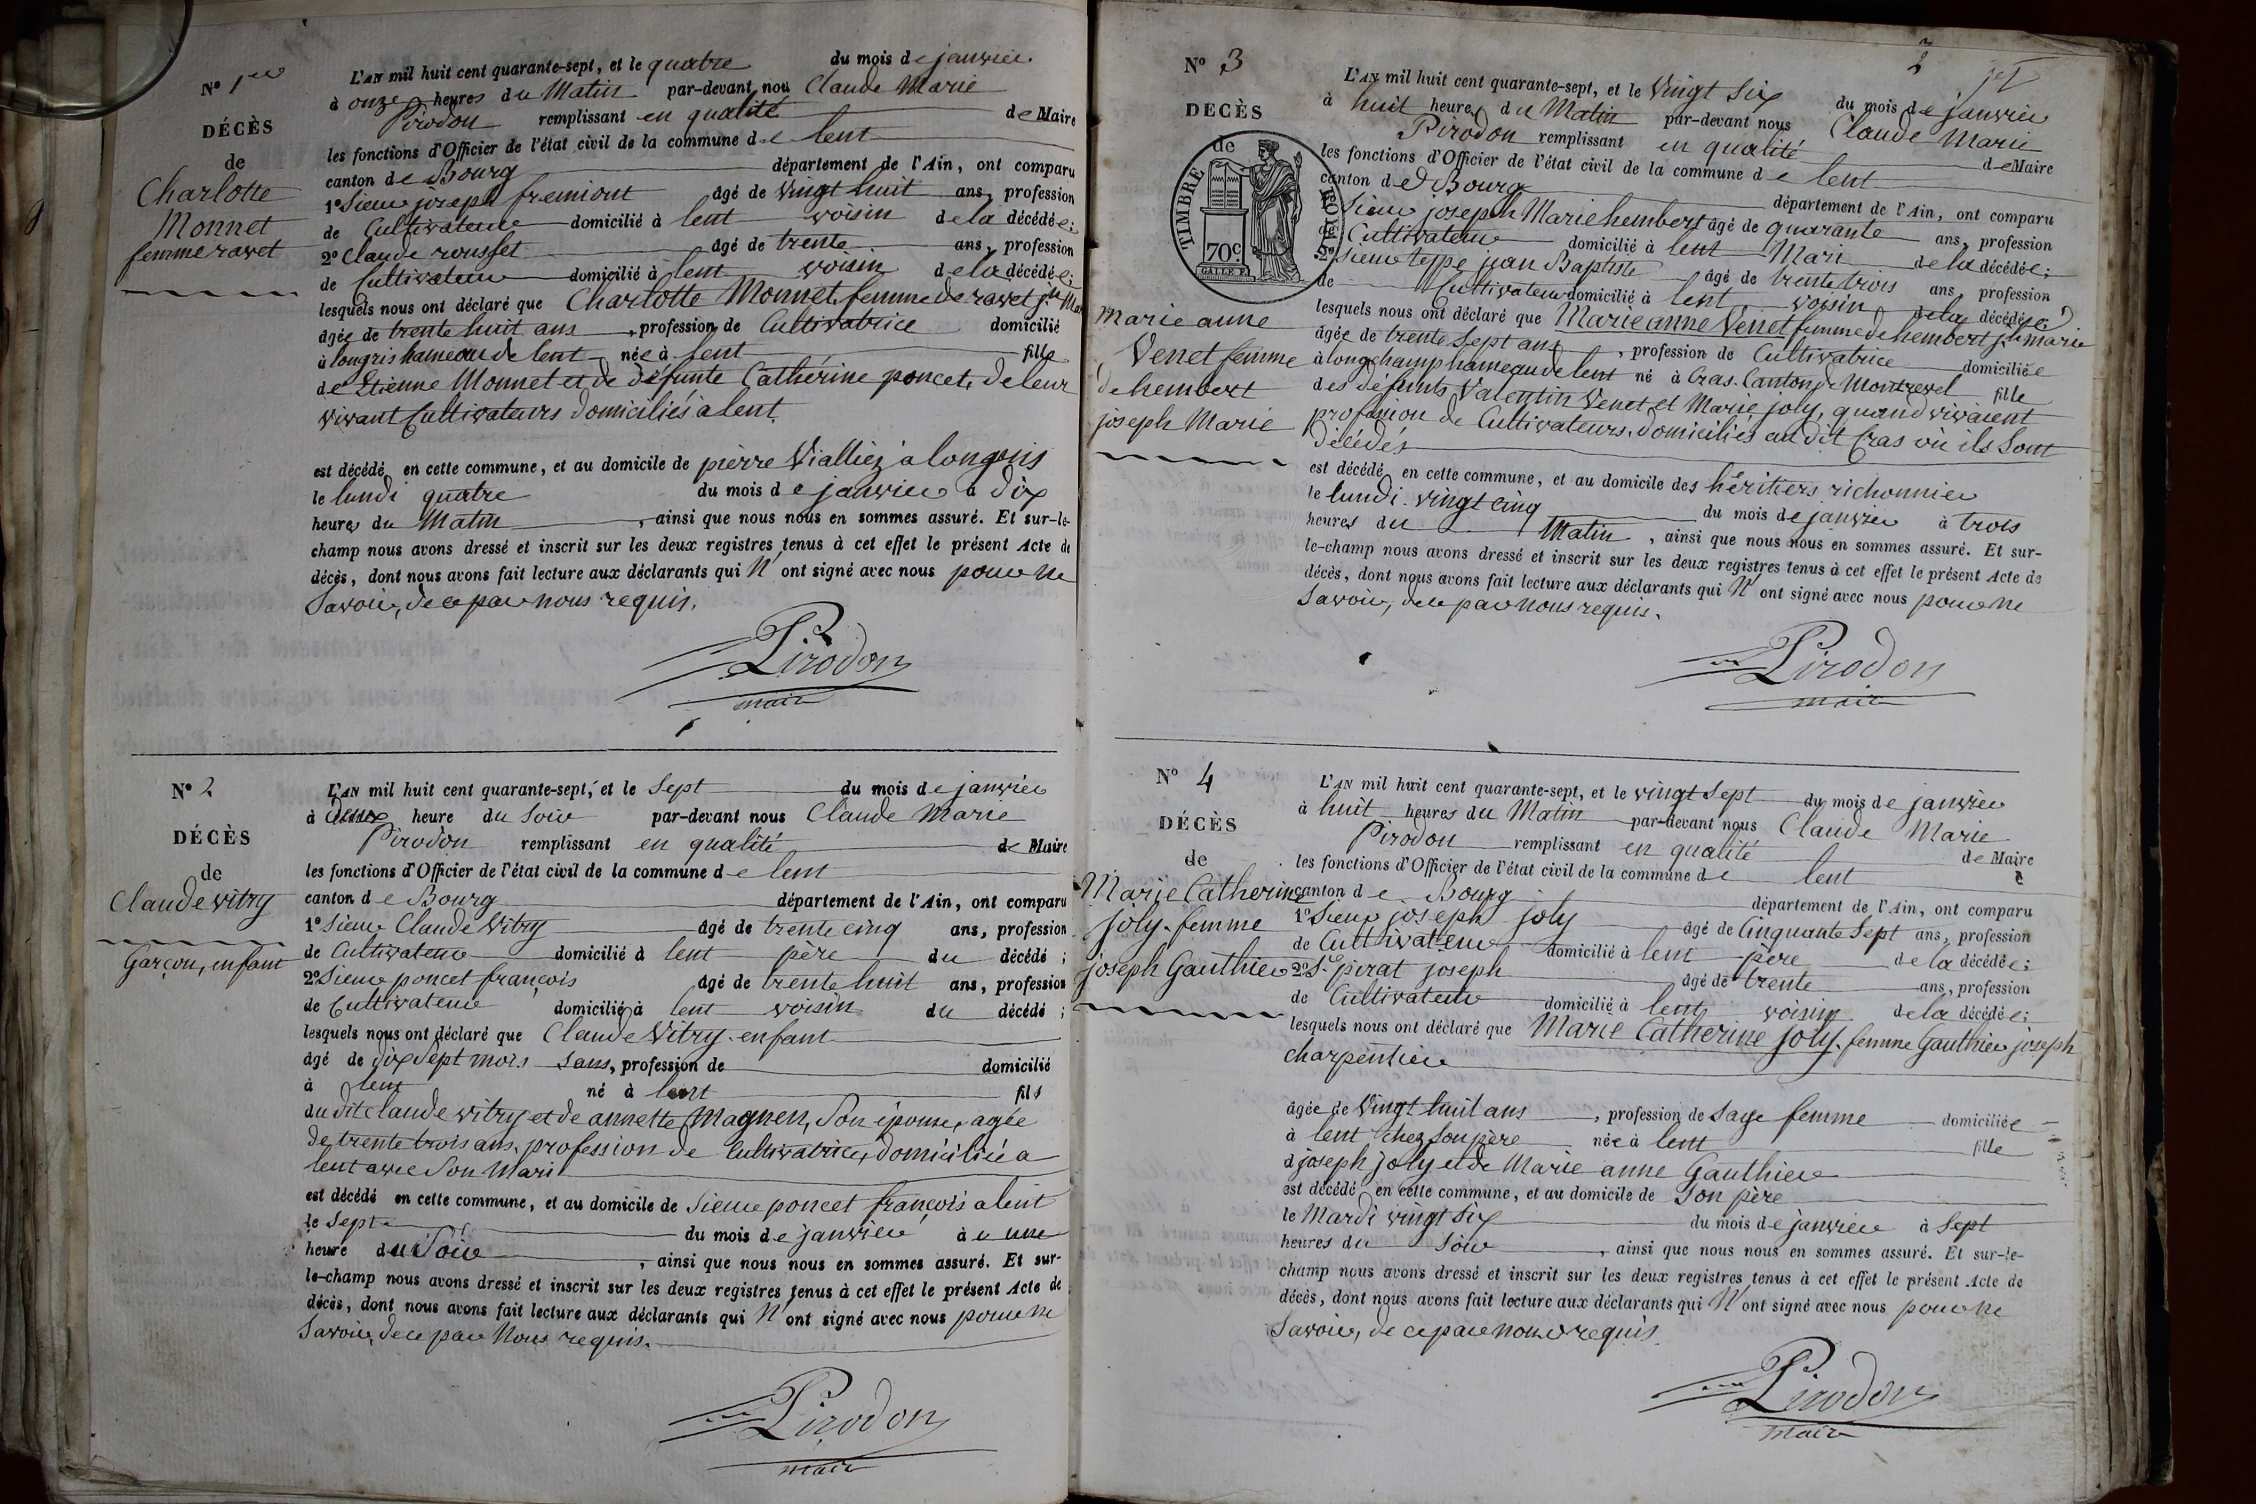 N° 1er
DÉCÈS
de
Charlotte
Monnet
femme ravet
L'AN mil huit cent quarante-sept, et le quatre du mois de janvier
à onze heures du Matin par-devant nou Claude Marie
Pirodon remplissant en qualité de Maire
les fonctions d'Officier de l'état civil de la commune de lent
canton de Bourg département de l'Ain, ont comparu
1° Sieur joseph fremiont âgé de vingt huit ans, profession
de Cultivateur domicilié à lent voisin de la décédée;
2° Claude rousset âgé de trente ans, profession
de Cultivateur domicilié à lent voisin de la décédée;
lesquels nous ont déclaré que Charlotte Monnet femme de ravet jn Mar
âgée de trente huit ans, profession de Cultivatrice domicilié
à longris hameau de lent née à lent fille
de Etienne Monnet et de défunte Catherine poncet, de leur
vivant Cultivateurs domiciliés à lent
est décédé en cette commune, et au domicile de pierre Vialliez à longris
le lundi quatre du mois de janvier à dix
heures du Matin, ainsi que nous nous en sommes assuré. Et sur-le-
champ nous avons dressé et inscrit sur les deux registres tenus à cet effet le présent Acte de
décès, dont nous avons fait lecture aux déclarants qui N' ont signé avec nous pour ne
Savoir, de ce par nous requis.
Pirodon
maire
N° 2
DÉCÈS
de
Claude vitry
Garçon, enfant
L'AN mil huit cent quarante-sept, et le Sept du mois de janvier
à deux heure du Soir par-devant nous Claude Marie
Pirodon remplissant en qualité de Maire
les fonctions d'Officier de l'état civil de la commune de lent
canton de Bourg département de l'Ain, ont comparu
1° Sieur Claude Vitry âgé de trente cinq ans, profession
de Cultivateur domicilié à lent père du décédé;
2° Sieur poncet françois âgé de trente huit ans, profession
de Cultivateur domicilié à lent voisin du décédé;
lesquels nous ont déclaré que Claude Vitry enfant
âgé de dix sept mois Sans, profession de domicilié
à lent né à lent fils
du dit claude vitry et de annette Magnen, Son épouse, agée
de trente trois ans, profession de Cultivatrice, domiciliée à
lent avec Son Mari
est décédé en cette commune, et au domicile de Sieur poncet françois a lent
le Sept du mois de janvier à une
heure du Soir, ainsi que nous nous en sommes assuré. Et sur-
le-champ nous avons dressé et inscrit sur les deux registres tenus à cet effet le présent Acte de
décès, dont nous avons fait lecture aux déclarants qui N' ont signé avec nous pour ne
Savoir, de ce par Nous requis.
Pirodon
maire
2
N° 3
DÉCÈS
de
TIMBRE ROYAL
70c
marie anne
Venet femme
de hembert
joseph Marie
L'AN mil huit cent quarante-sept, et le Vingt Six du mois de janvier
à huit heures du Matin par-devant nous Claude Marie
Pirodon remplissant en qualité de Maire
les fonctions d'Officier de l'état civil de la commune de lent
canton de Bourg département de l'Ain, ont comparu
Sieur joseph Marie hembert âgé de quarante ans, profession
Cultivateur domicilié à lent Mari de la décédée;
Sieur teppe jean Baptiste âgé de trente trois ans, profession
de Cultivateur domicilié à lent voisin de la décédée;
lesquels nous ont déclaré que Marie anne Venet femme de hembert jph marie
âgée de trente Sept ans, profession de Cultivatrice domiciliée
à longchamp hameau de lent né à Cras. Canton de Montrevel fille
des défunts Valentin Venet et Marie joly, quand vivaient
profession de Cultivateurs, domiciliés au dit Cras où ils Sont
décédés
est décédé en cette commune, et au domicile des héritiers richonnier
le lundi vingt cinq du mois de janvier à trois
heures du Matin, ainsi que nous nous en sommes assuré. Et sur-
le-champ nous avons dressé et inscrit sur les deux registres tenus à cet effet le présent Acte de
décès, dont nous avons fait lecture aux déclarants qui N' ont signé avec nous pour ne
Savoir, de ce par nous requis.
Pirodon
maire
N° 4
DÉCÈS
de
Marie Catherine
joly. femme
joseph Gauthier
L'AN mil huit cent quarante-sept, et le vingt Sept du mois de janvier
à huit heures du Matin par-devant nous Claude Marie
Pirodon remplissant en qualité de Maire
les fonctions d'Officier de l'état civil de la commune de lent
canton de Bourg département de l'Ain, ont comparu
1° Sieur joseph joly âgé de Cinquante Sept ans, profession
de Cultivateur domicilié à lent père de la décédée;
2° Sr pirat joseph âgé de trente ans, profession
de Cultivateur domicilié à lent voisin de la décédée;
lesquels nous ont déclaré que Marie Catherine joly. femme Gauthier joseph
charpentier
âgée de Vingt huit ans, profession de Sage femme domiciliée
à lent chez Son père née à lent fille
d joseph joly et de Marie anne Gauthier
est décédé en cette commune, et au domicile de Son père
le Mardi vingt Six du mois de janvier à Sept
heures du Soir, ainsi que nous nous en sommes assuré. Et sur-le-
champ nous avons dressé et inscrit sur les deux registres tenus à cet effet le présent Acte de
décès, dont nous avons fait lecture aux déclarants qui N' ont signé avec nous pour ne
Savoir, de ce par nous requis
Pirodon
Maire